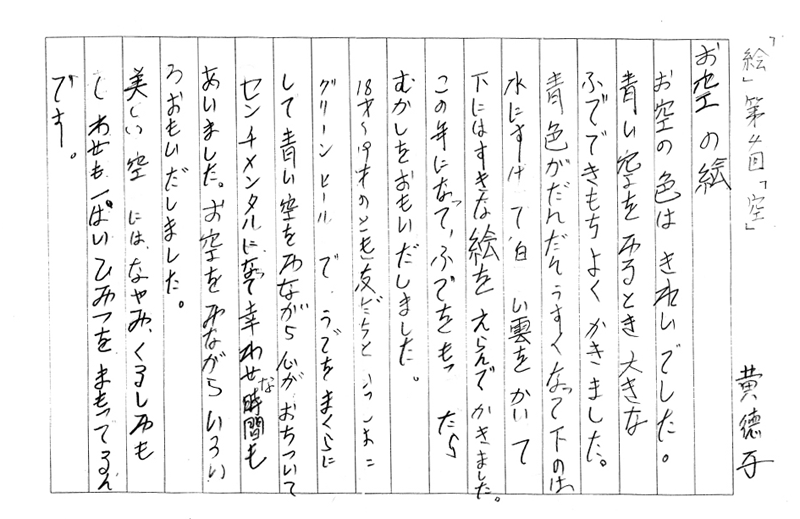 「絵」第4回「空」
黄徳子
お空の絵
お空の色は きれいでした。
青い空を みるとき 大きな
ふでできもちよく かきました。
青色がだんだんうすくなって下のは
水にすけて 白い雲を かいて
下にはすきな絵を えらんでかきました。
この年になって、ふでをもったら
むかしをおもいだしました。
18才〜19才のとき 友だちと いっしょに
グリーンヒールで、うでをまくらに
して青い空をみながら心が おちついて
センチメンタルになって幸わせな時間も
あいました。お空を みながら いろい
ろおもいだしました。
美しい空には、なやみ、くるしみも
しわせも一ぱい ひみつを まもってるん
です。